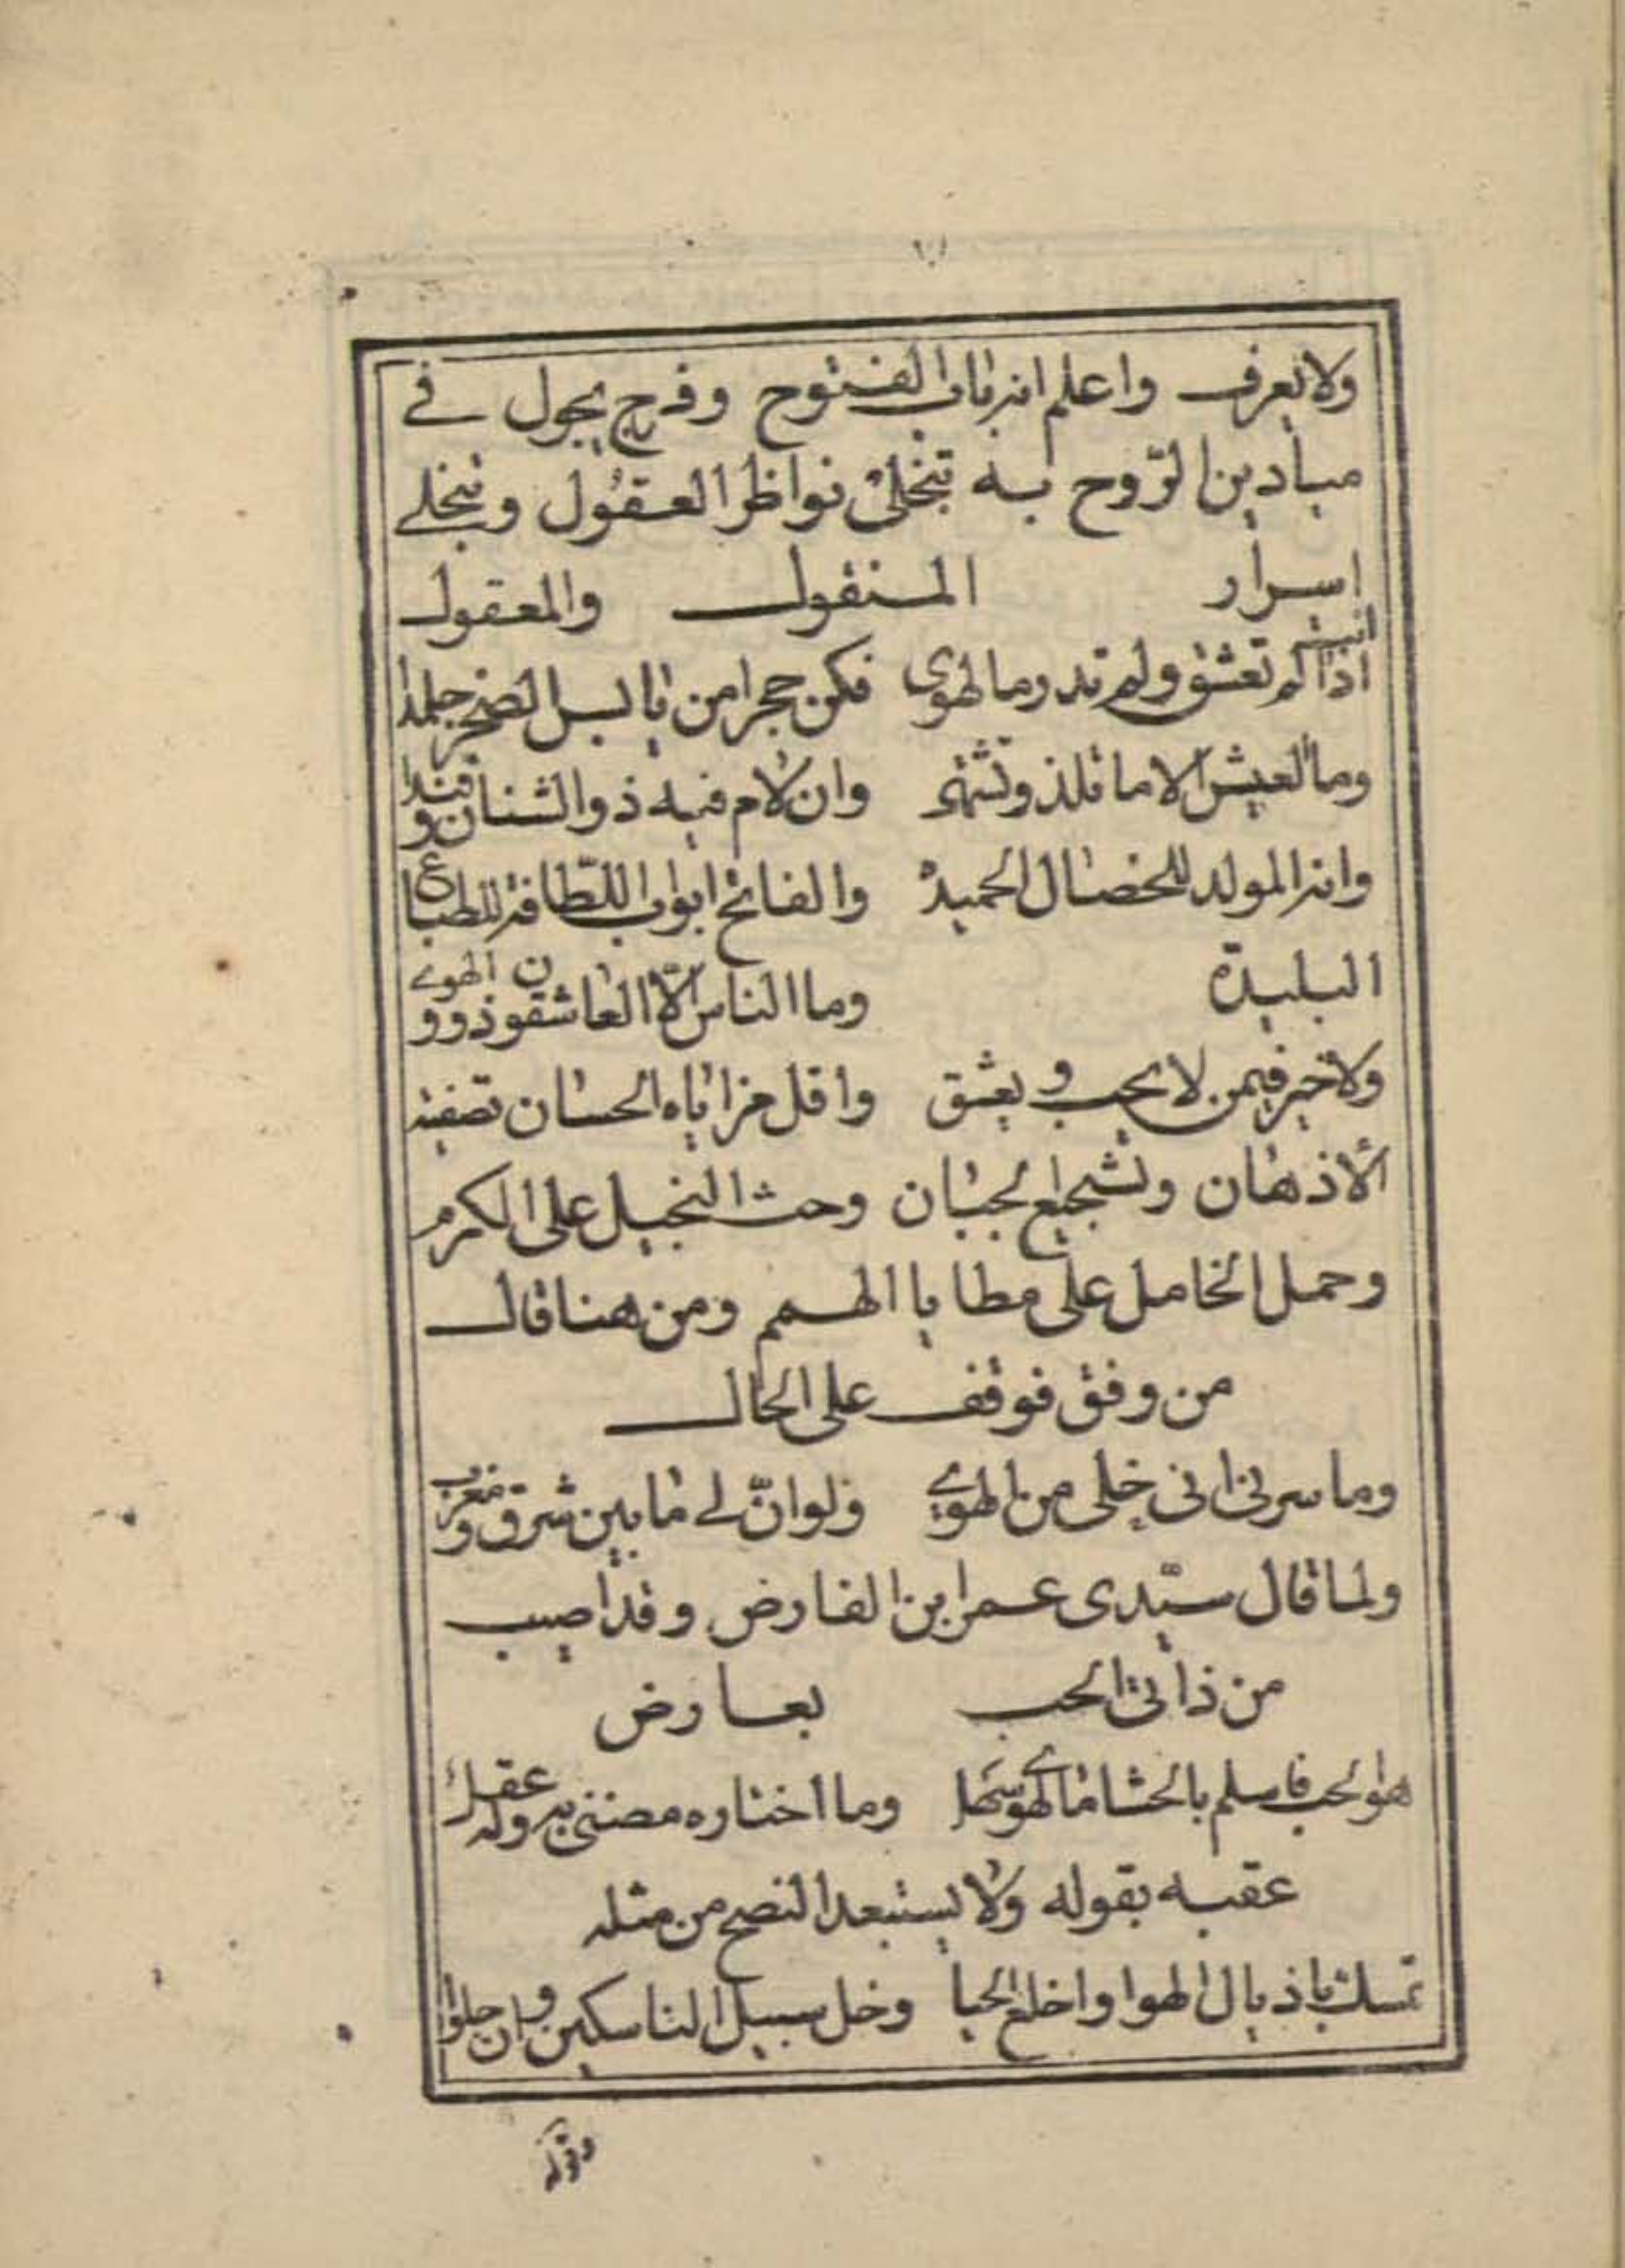 ولا يعرف واعلم انه باب الفتوح وفرج يجول في
ميادين الرّوح به تنجلى نواظر العقول وتنجلي
اسرار المنقول والمعقول
اذا انت لم تعشق ولم تدر ما الهوى فكن حجرا من يابس الصخر جلمدا
وما العيش الا ما تلذ وتشتهى وان لام فيه ذو الشنان وفندا
وانه المولد للخصال الحميدة والفاتح ابواب اللطافة للطباع
البليدة وما الناس الّا العاشقون ذوو الهوى
ولا خير فيمن لا يحب ويعشق واقل مزاياه الحسان تصفية
الأذهان وتشجيع الجبان وحث البخيل على الكرم
وحمل الخامل على مطايا الهمم ومن هنا قال
من وفق فوقف على الحال
وما سرنى انى خلى من الهوى ولو انّ لي ما بين شرق ومغرب
ولما قال سيّدى عمر ابن الفارض وقد اصيب
من ذاتى الحب بعارض
هو الحب فاسلم بالحشا ما الهوى سهل وما اختاره مضنى به وله عقل
عقبه بقوله ولا يستبعد النصح من مثله
تمسك باذيال الهوا واخلع الحيا وخل سبيل الناسكين وان جلوا
وقوله